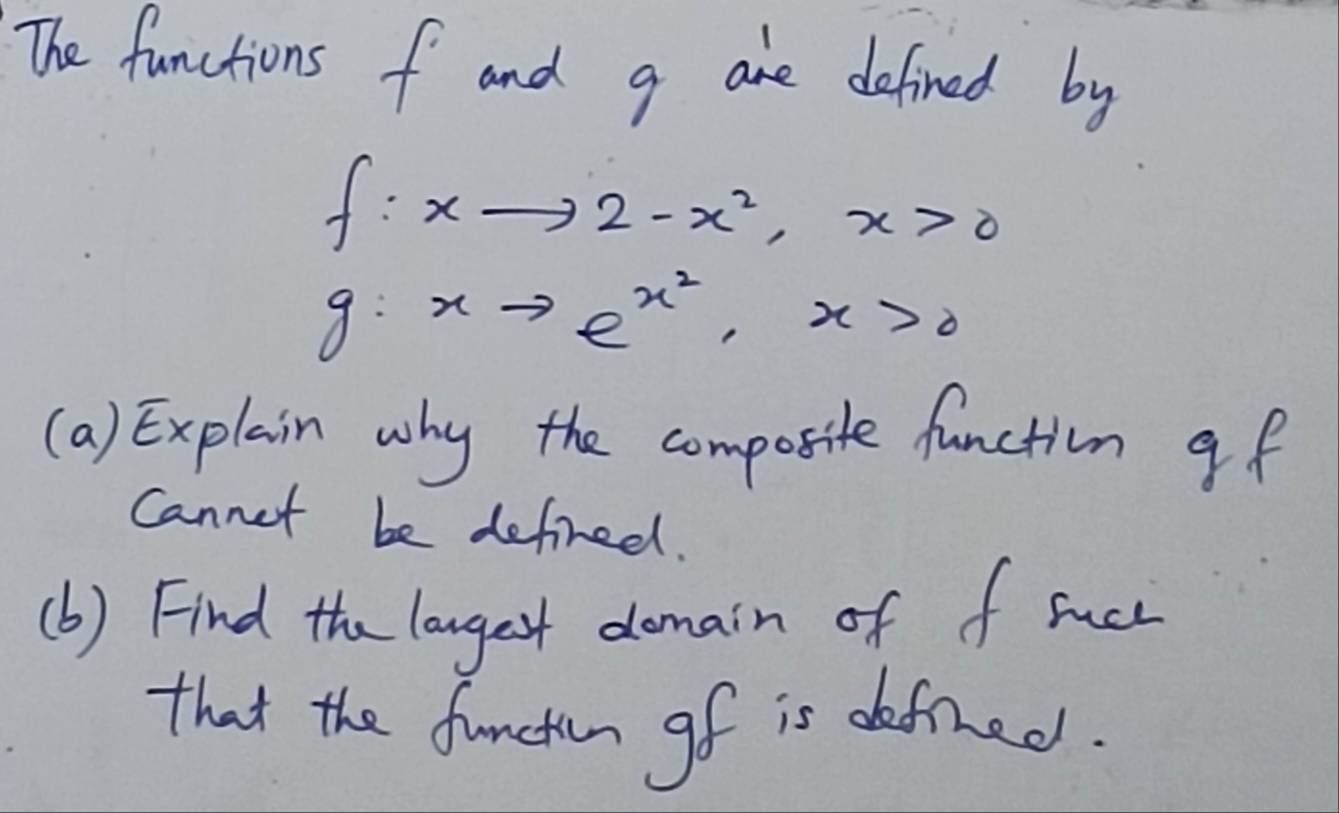 The functions f and g are defined by
f : x → 2 - x², x > 0
g : x → e^x², x > 0
(a) Explain why the composite function gf
Cannot be defined.
(b) Find the largest domain of f such
that the function gf is defined.